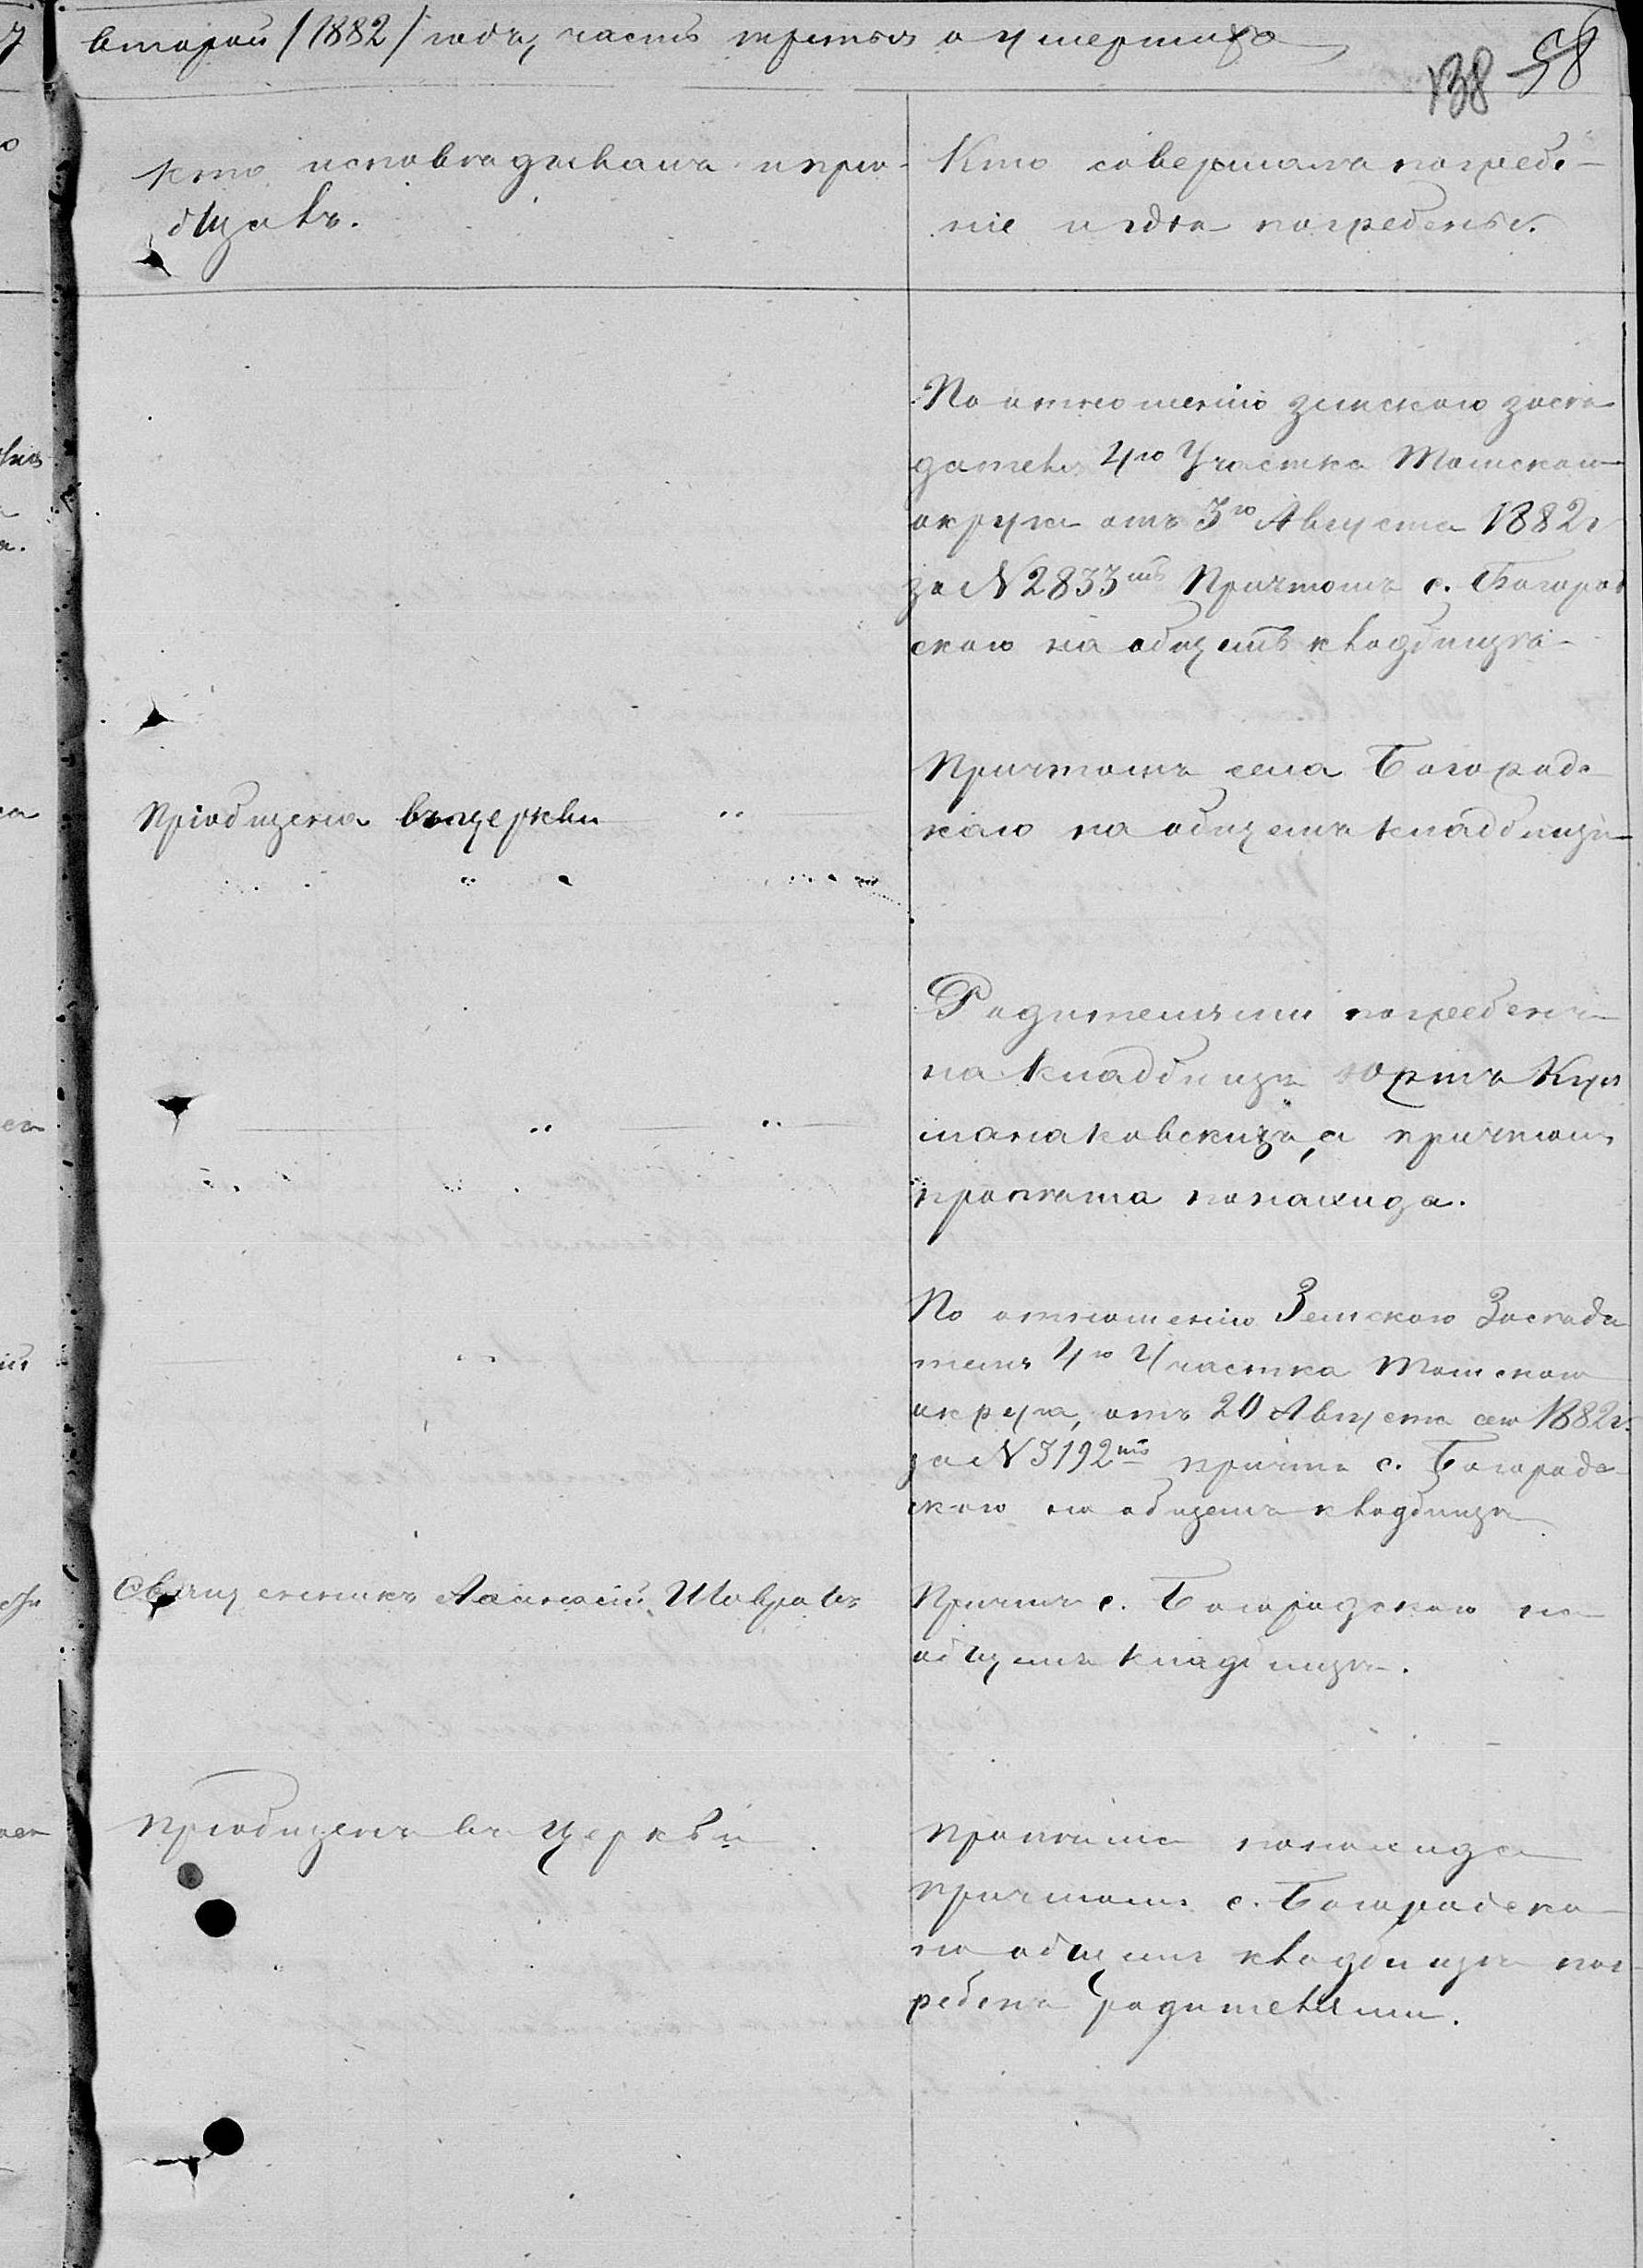 второй /1882/ годъ, часть третья о умершихъ
138 58
Кто исповѣдывалъ и прiо-
бщалъ.
Кто совершалъ погребе-
нiе и гдѣ погребены.
По отношенiю земскаго засѣ
дателя 4го Участка Томскаго
округа отъ 3го Августа 1882 г
за N 2833мъ Причтомъ с. Богород
скаго на общемъ кладбищѣ
Причтомъ села Богородс
каго на общемъ кладбищѣ
Прiобщена въ церкви
Родителями погребенъ
на кладбищѣ юртъ
а причтомъ
пропѣта панахида.
По отношенiю Земскаго Засѣда
теля 4го Участка Томскаго
округа, отъ 20 Августа сего 1882 г.
за N 3192мъ причтъ с. Богородс
скаго на общемъ кладбищѣ
Священникъ
Причтъ с. Богородскаго на
общемъ кладбищѣ.
Прiобщенъ въ церкви
Пропѣта панахида
Причтомъ с. Богородска
на общемъ кладбищѣ пог
ребенъ родителями.